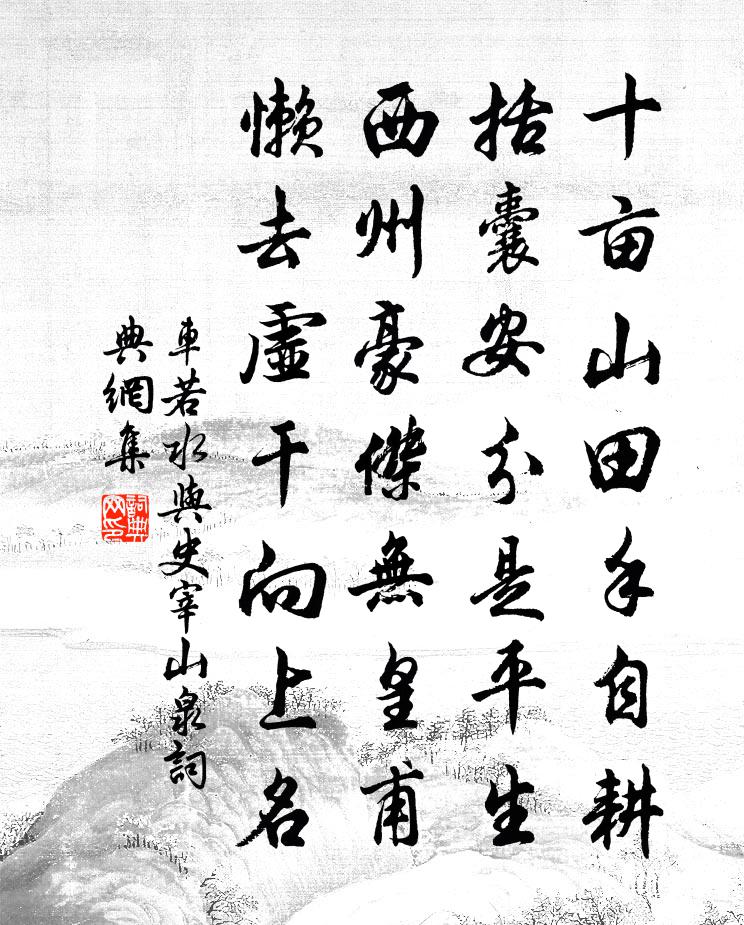 十亩山田手自耕
括囊安分是平生
西州豪傑無皇甫
懶去虛干向上名
車若水與史宰山泉詞
典網集
詞典網印